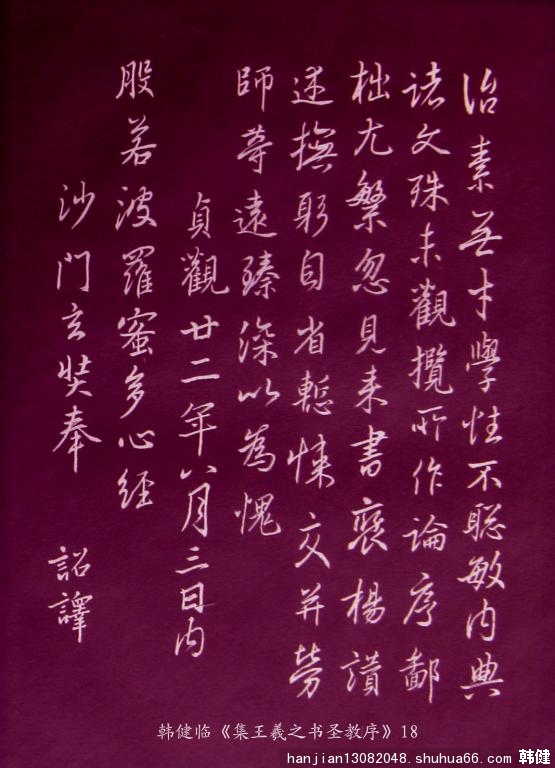 治素無才學性不聰敏内典
諸文殊未觀攬所作論序鄙
拙尤繁忽見来書褒楊讃
述撫躬自省慙悚交并勞
師等遠臻深以為愧
貞觀廿二年八月三日内
般若波羅蜜多心經
沙門玄奘奉 詔譯
韩健临《集王羲之书圣教序》18
hanjian13082048.shuhua66.com 韩健